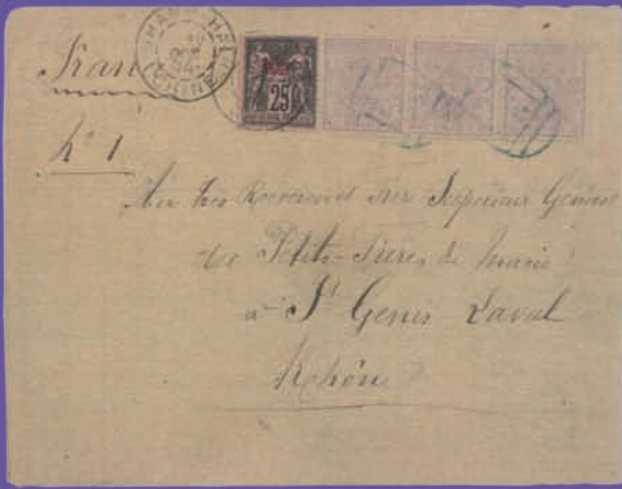 SHANG-HAI
CHINE
25
N° 1
Au très Révérend Frère Supérieur Général
des Petits-Frères de Marie
à St Genis Laval
Rhône